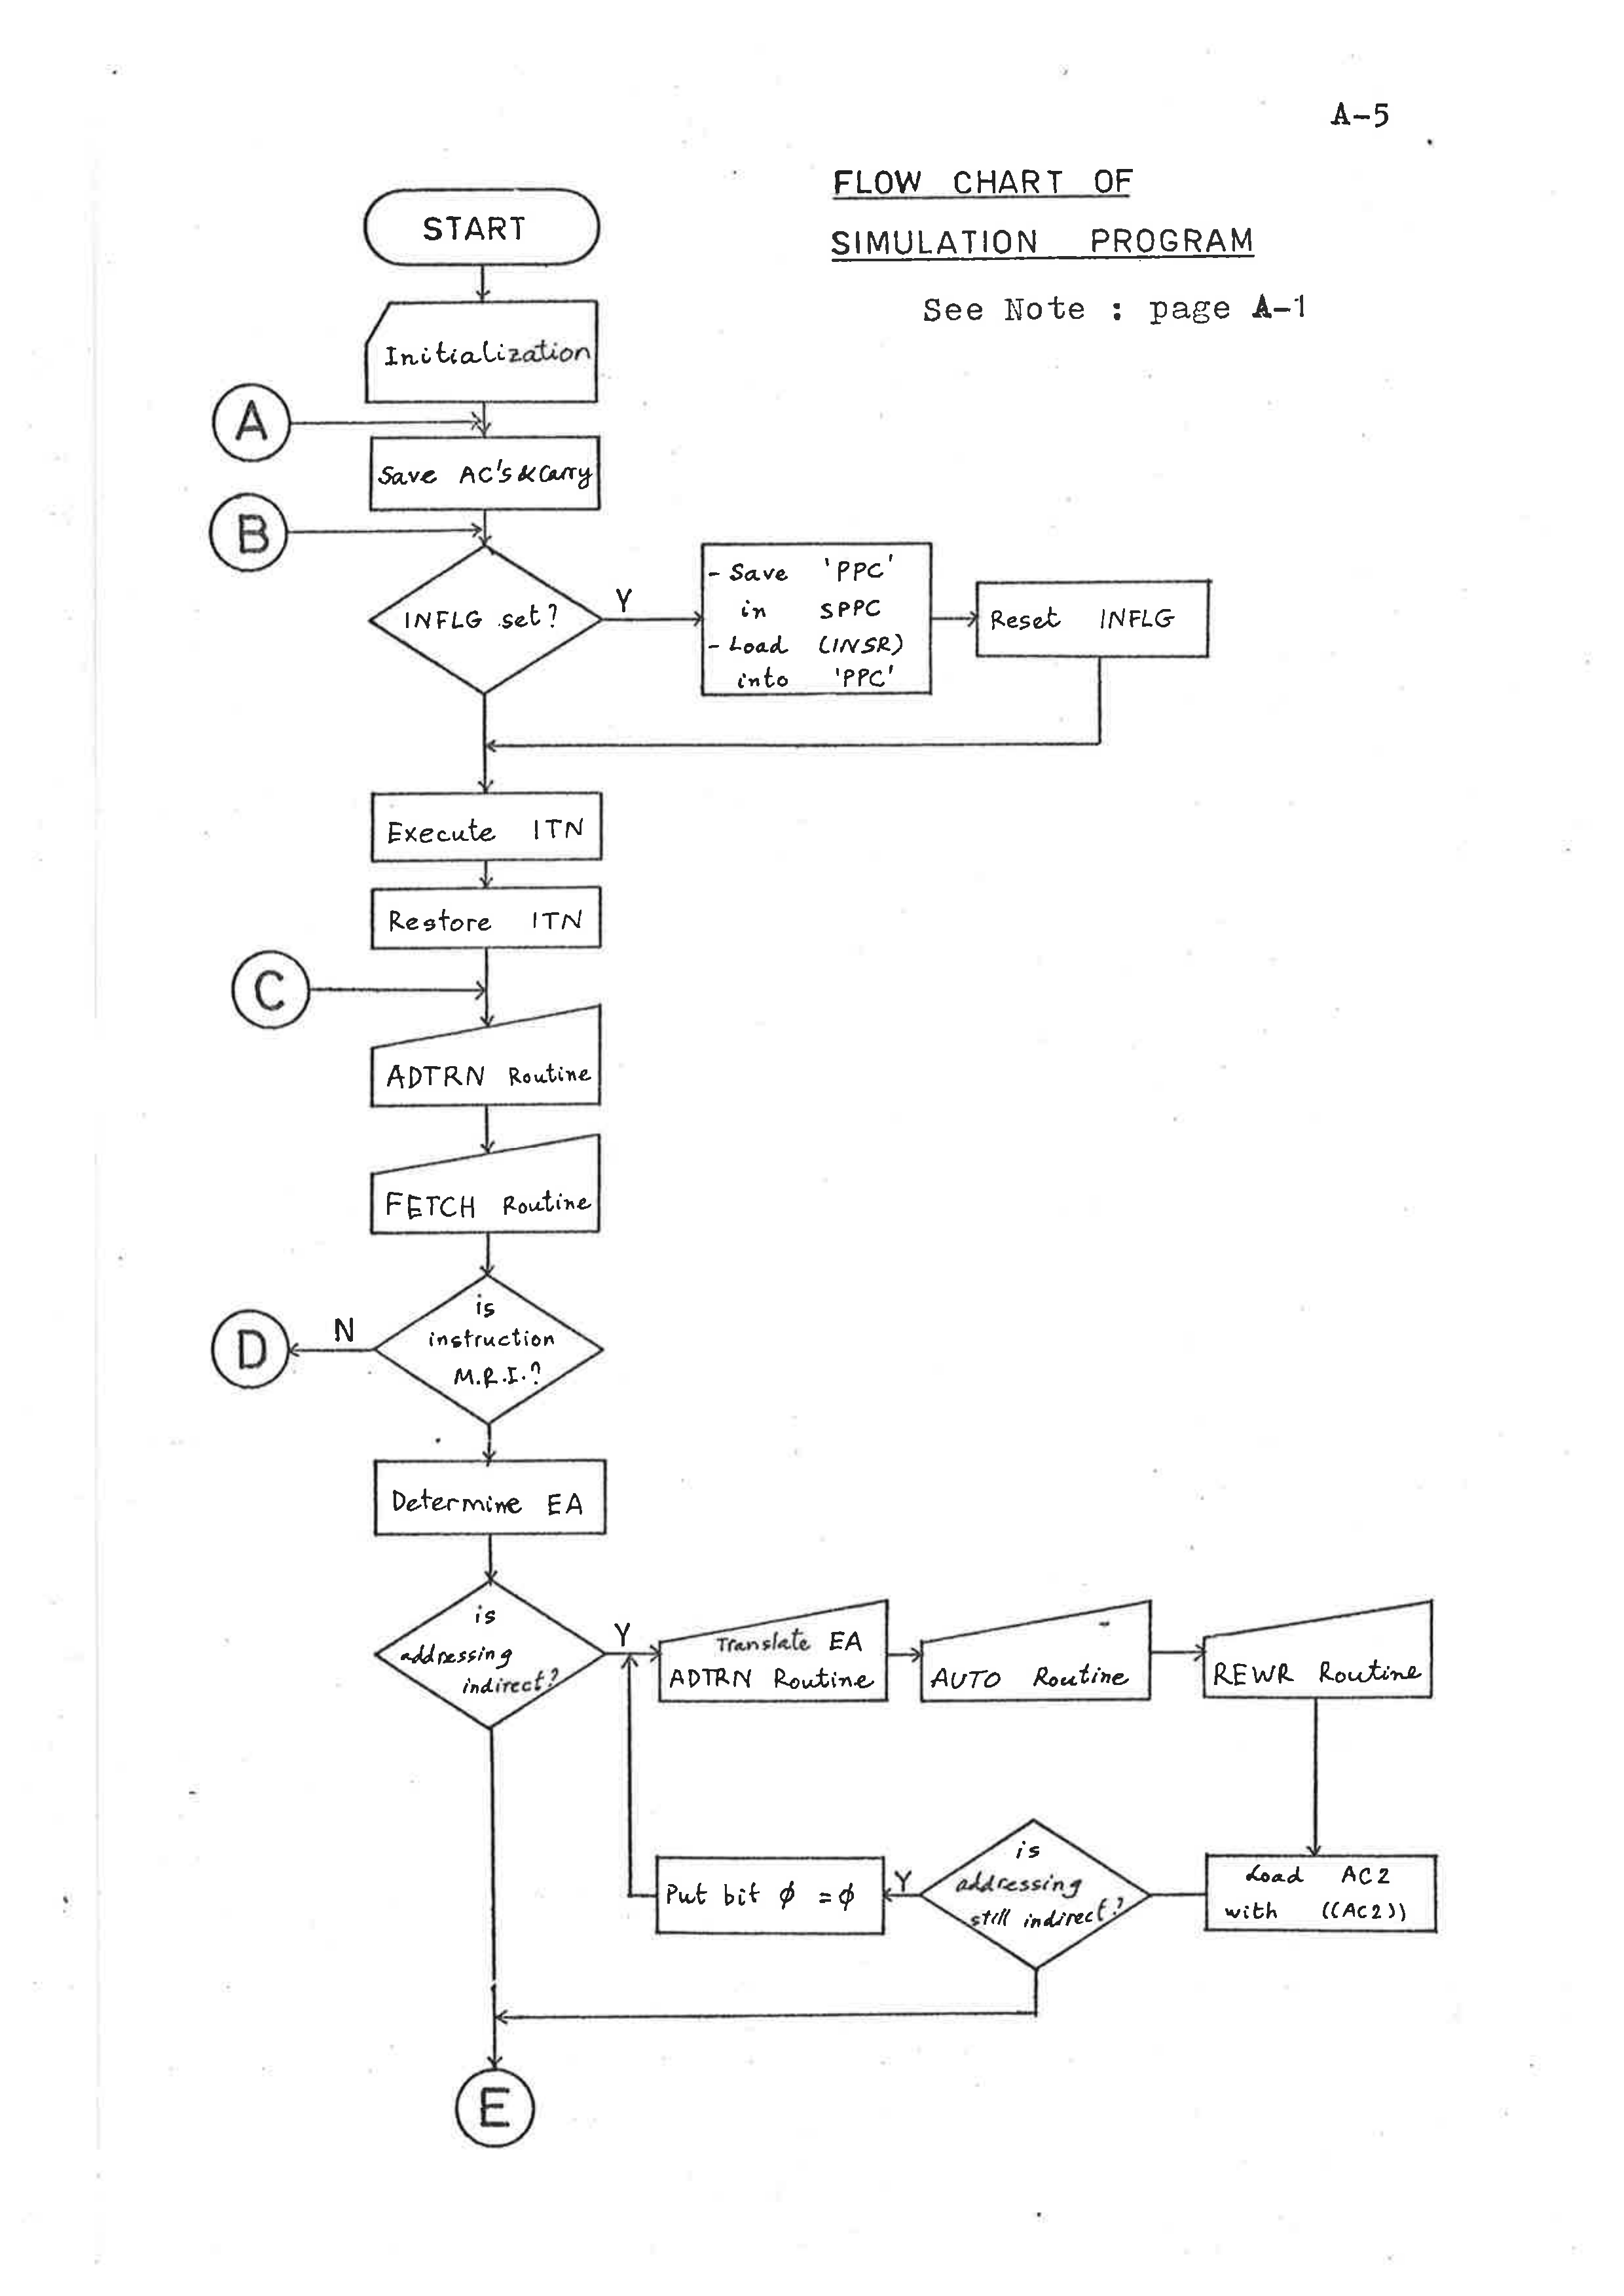 A-5
FLOW CHART OF
SIMULATION PROGRAM
See Note : page A-1
START
Initialization
A
Save AC's & Carry
B
INFLG set?
Y
- Save 'PPC'
in SPPC
- Load (INSR)
into 'PPC'
Reset INFLG
Execute ITN
Restore ITN
C
ADTRN Routine
FETCH Routine
is
instruction
M.R.I.?
N
D
Determine EA
is
addressing
indirect?
Y
Translate EA
ADTRN Routine
AUTO Routine
REWR Routine
Load AC2
with ((AC2))
is
addressing
still indirect?
Y
Put bit ϕ = ϕ
E